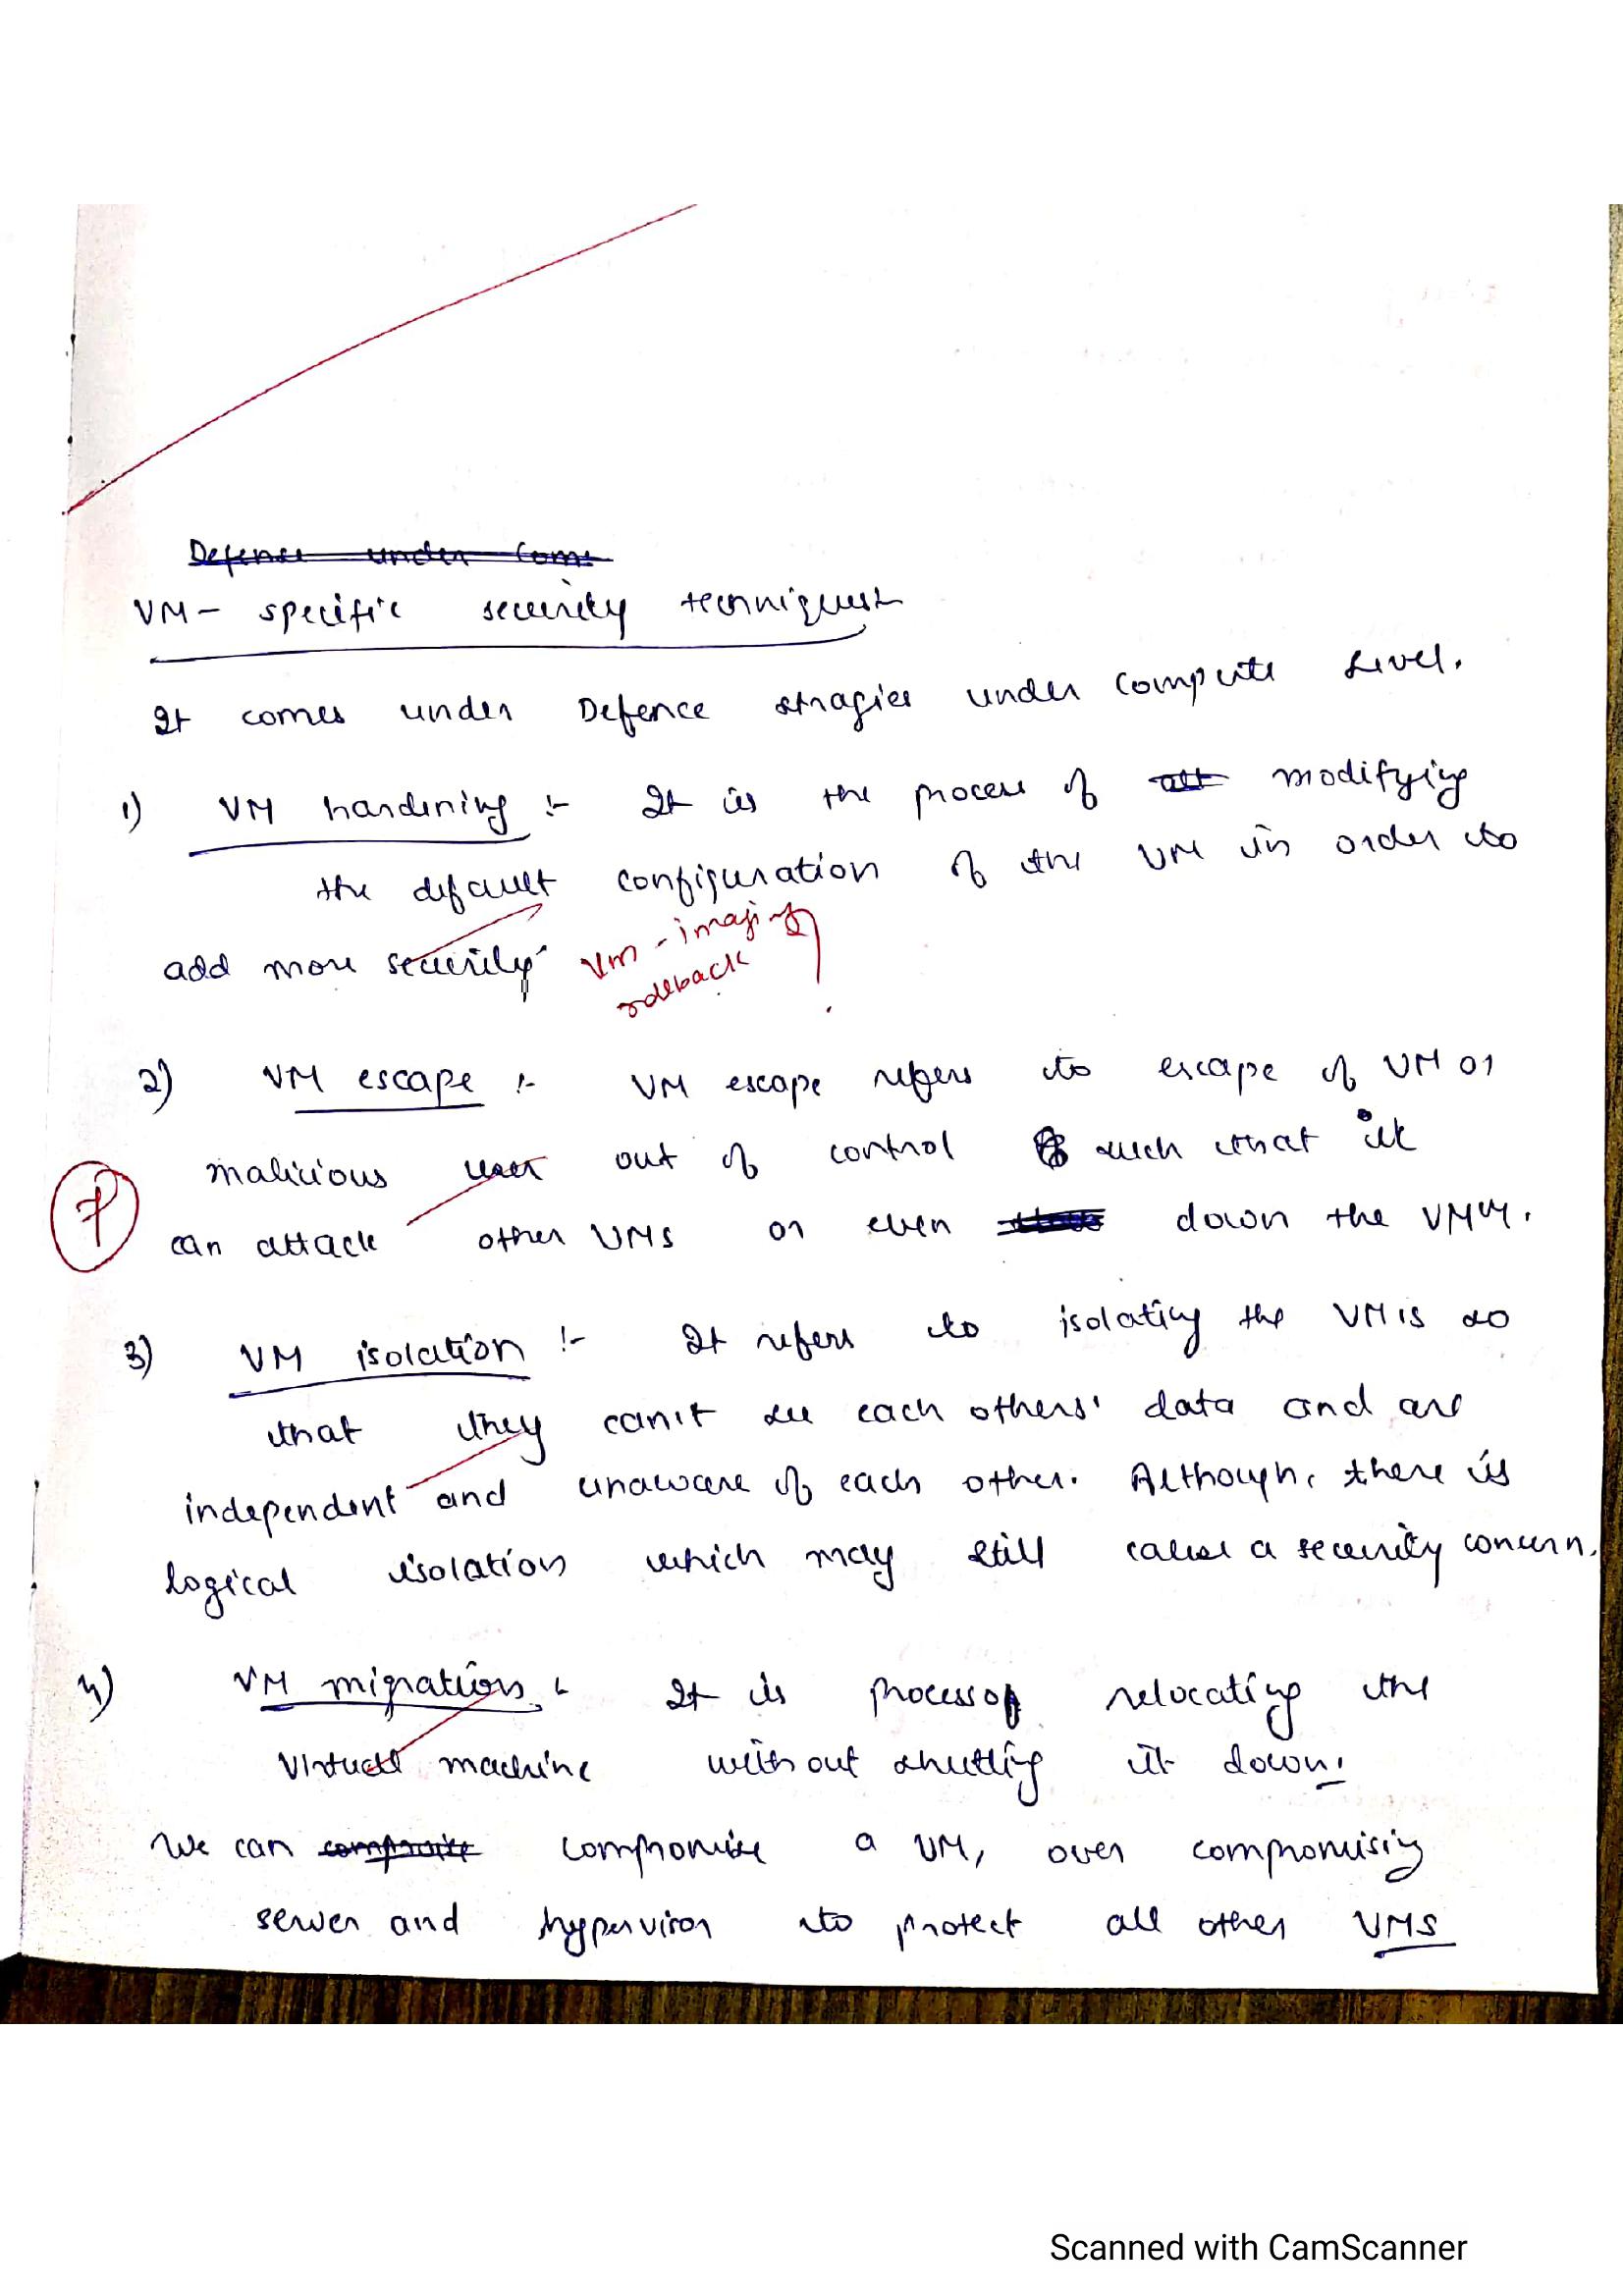 Defence under Com
VM - specific security techniques:-
It comes under Defence stragies under compute Level.
1) VM hardining :- It is the process of modifying
the default configuration of the VM in order to
add more security.
Vm - imaging
rollback ?
2) VM escape :- VM escape refers to escape of VM or
malicious user out of control such that it
can attack other VMs or even down the VMM.
7
3) VM isolation :- It refers to isolating the VM's so
that they can't see each others' data and are
independent and unaware of each other. Although, there is
logical isolation which may still cause a security concern.
4) VM migration :- It is process of relocating the
virtual machine without shutting it down.
We can compromise a VM, over compromising
server and hypervisor to protect all other VMs
Scanned with CamScanner